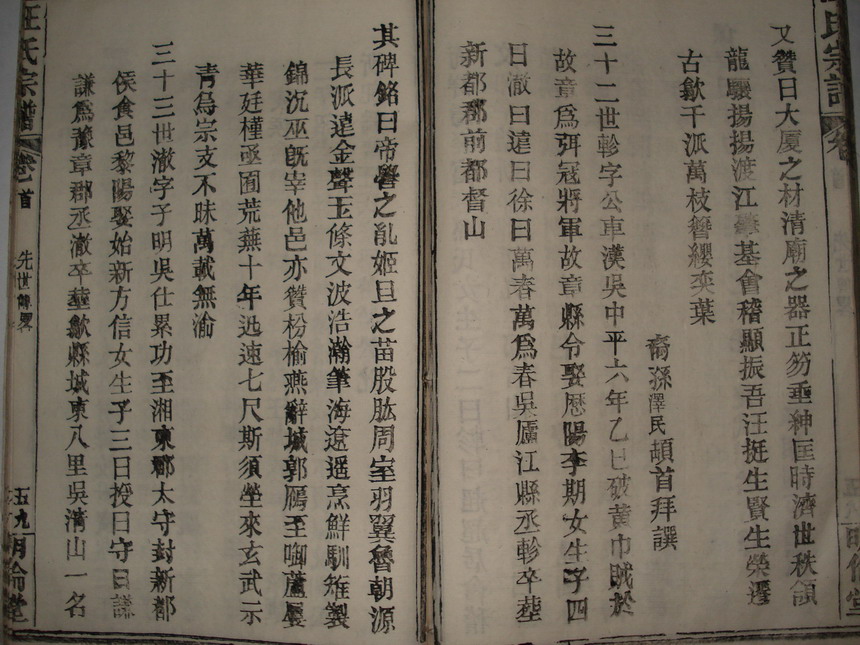 汪氏宗譜
又贊曰大厦之材清廟之器正笏垂紳匡時濟世秩頒
龍驤揚揚渡江肇基會稽顯振吾汪挺生賢生榮遷
古歙千派萬枝簪纓奕葉
裔孫澤民頓首拜譔
三十二世軫字公車漢吳中平六年乙巳破黃巾賊於
故章爲弭冠將軍故章縣令娶歷陽李期女生子四
曰澈曰遠曰徐曰萬春萬爲春吳廬江縣丞軫卒塟
新都郡前都督山
其碑銘曰帝嚳之胤姬旦之苗股肱周室羽翼魯朝源
長派遠金聲玉條文波浩瀚筆海遼遥烹鮮馴雉製
錦沉巫旣宰他邑亦贊枌榆燕辭城郭鴈至啣蘆屢
華廷槿亟囿荒蕪十年迅速七尺斯須塋來玄武示
青烏宗支不昧萬載無渝
三十三世澈字子明吳仕累功至湘東郡太守封新都
侯食邑黎陽娶始新方信女生子三曰授曰守曰謙
謙爲豫章郡丞澈卒塟歙縣城東八里吳清山一名
汪氏宗譜 卷首 先世 畧 五九 明倫堂